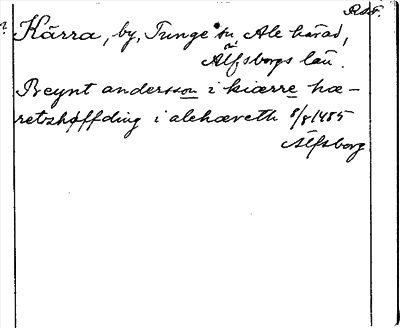 R.S.F.
? Kärra, by, Tunge sn, Ale härad,
Älfsborgs län.
Beynt andersson i kiærre hæ-
retzhøffding i alehæreth 8/8 1485
Älfsborg